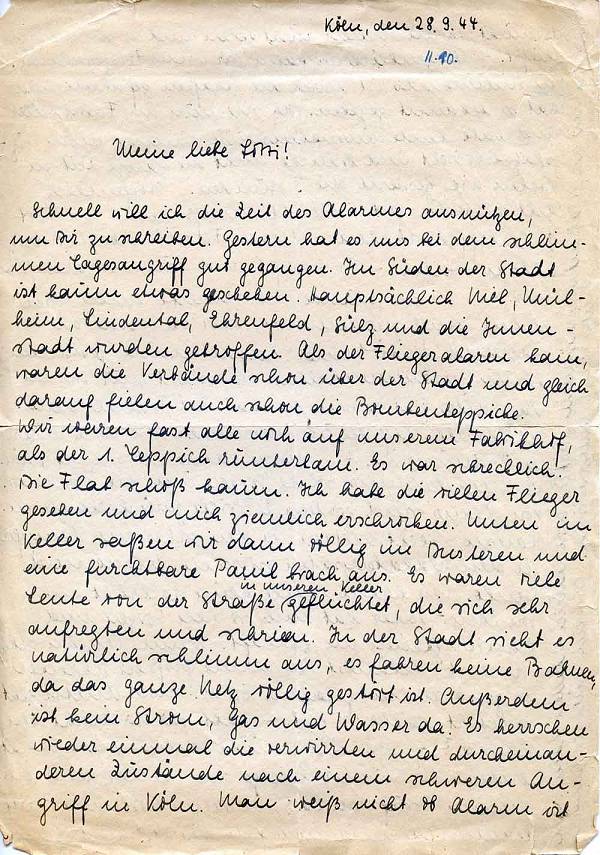 Köln, den 28.9.44.
11.10.
Meine liebe Lotti!
Schnell will ich die Zeit des Alarmes ausnützen,
um Dir zu schreiben. Gestern hat es uns bei dem schlim-
men Tagesangriff gut gegangen. Im Süden der Stadt
ist kaum etwas geschehen. Hauptsächlich Niel, Mül-
heim, Lindental, Ehrenfeld, Sülz und die Innen-
stadt wurden getroffen. Als der Fliegeralarm kam,
waren die Verbände schon über der Stadt und gleich
darauf fielen auch schon die Bombenteppiche.
Wir waren fast alle noch auf unserem Fabrikhof,
als der 1. Teppich runterkam. Es war schrecklich.
Die Flak schoß kaum. Ich habe die vielen Flieger
gesehen und mich ziemlich erschrocken. Unten im
Keller saßen wir dann völlig im Dusteren und
eine furchtbare Panik brach aus. Es waren viele
Leute von der Straße in unseren Keller geflüchtet, die sich sehr
aufregten und schrien. In der Stadt sieht es
natürlich schlimm aus, es fahren keine Bahnen,
da das ganze Netz völlig gestört ist. Außerdem
ist kein Strom, Gas und Wasser da. Es herrschen
wieder einmal die verwirrten und durcheinan-
deren Zustände nach einem schweren An-
griff in Köln. Man weiß nicht ob Alarm ist